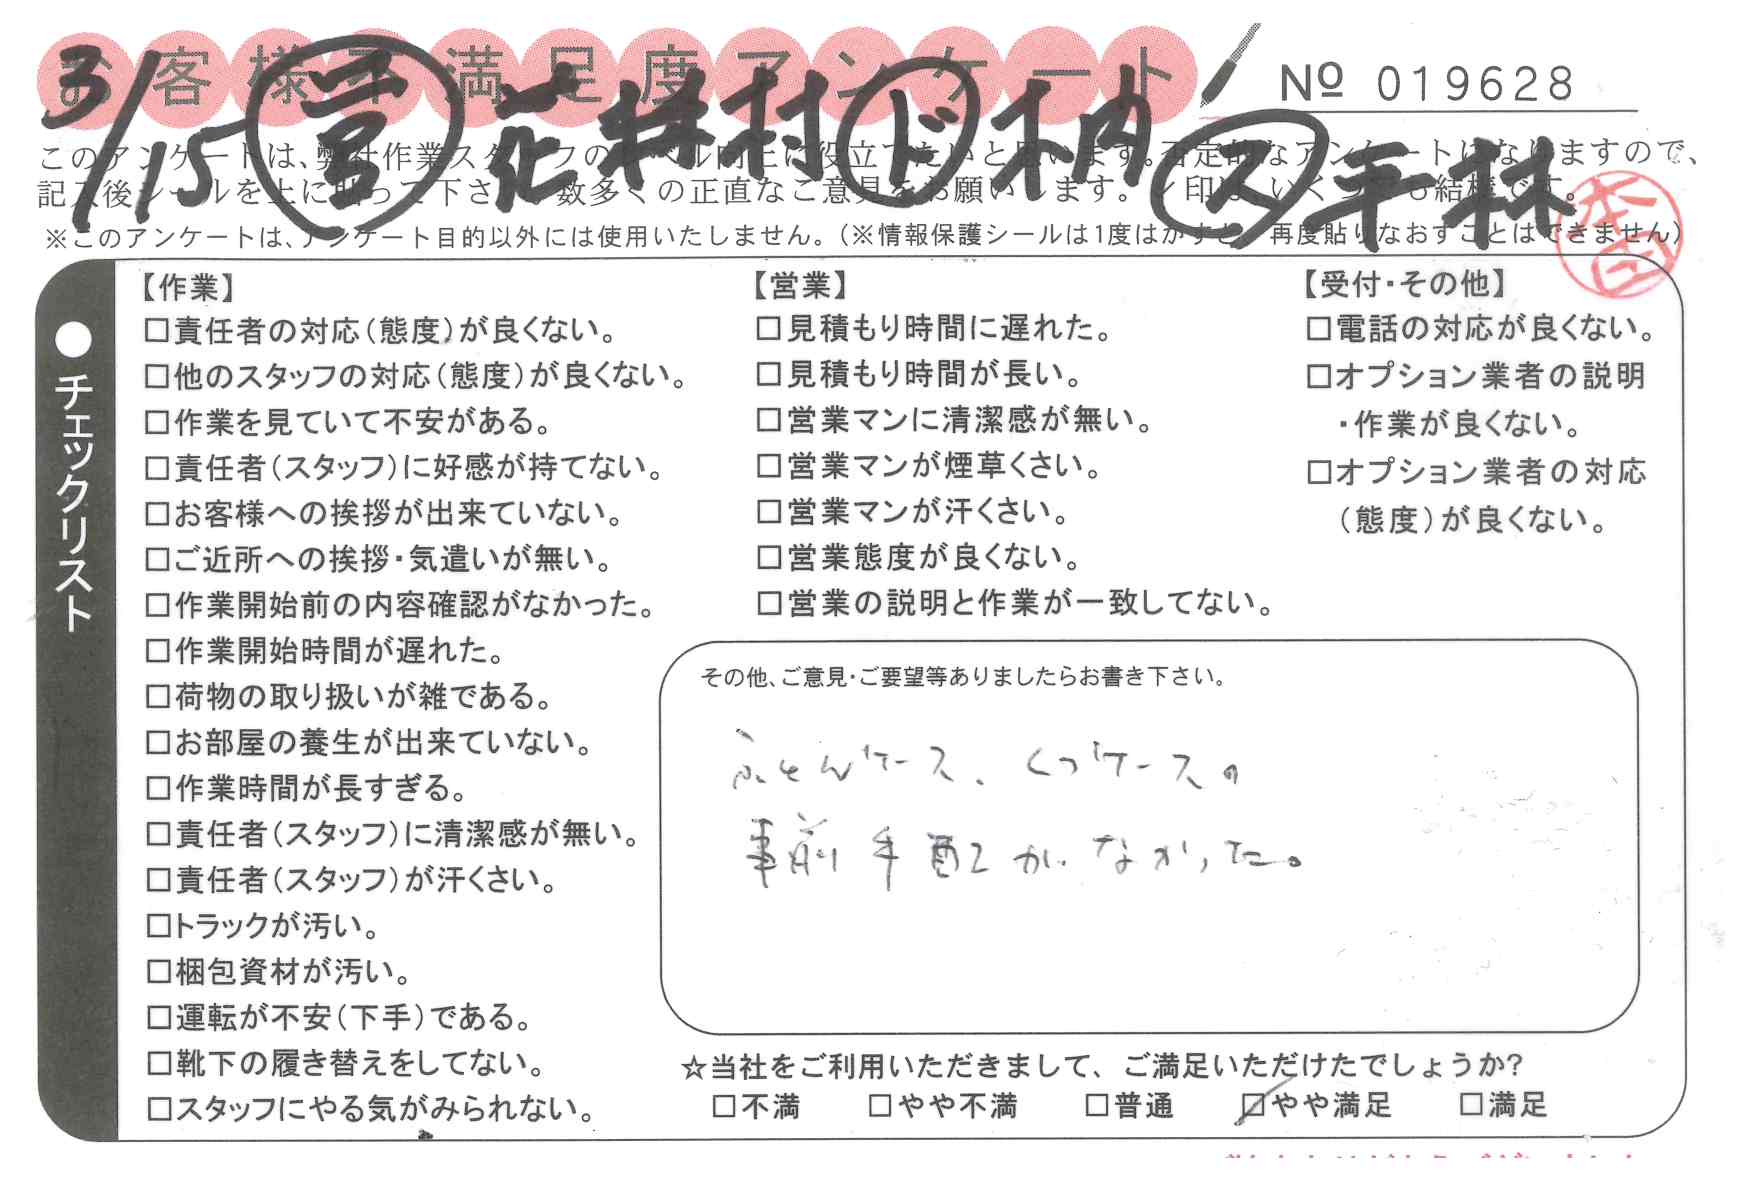 お客様不満足度アンケート
№ 019628
3/15 営 花井村 ド 木内 ス 平林
このアンケートは、弊社作業スタッフのレベル向上に役立てたいと思います。否定的なアンケートになりますので、
記入後シールを上に貼って下さい。数多くの正直なご意見をお願いします。レ印は、いくつでも結構です。
※このアンケートは、アンケート目的以外には使用いたしません。(※情報保護シールは1度はがすと、再度貼りなおすことはできません)
●チェックリスト
【作業】
□責任者の対応(態度)が良くない。
□他のスタッフの対応(態度)が良くない。
□作業を見ていて不安がある。
□責任者(スタッフ)に好感が持てない。
□お客様への挨拶が出来ていない。
□ご近所への挨拶・気遣いが無い。
□作業開始前の内容確認がなかった。
□作業開始時間が遅れた。
□荷物の取り扱いが雑である。
□お部屋の養生が出来ていない。
□作業時間が長すぎる。
□責任者(スタッフ)に清潔感が無い。
□責任者(スタッフ)が汗くさい。
□トラックが汚い。
□梱包資材が汚い。
□運転が不安(下手)である。
□靴下の履き替えをしてない。
□スタッフにやる気がみられない。
【営業】
□見積もり時間に遅れた。
□見積もり時間が長い。
□営業マンに清潔感が無い。
□営業マンが煙草くさい。
□営業マンが汗くさい。
□営業態度が良くない。
□営業の説明と作業が一致してない。
【受付・その他】
□電話の対応が良くない。
□オプション業者の説明
・作業が良くない。
□オプション業者の対応
(態度)が良くない。
その他、ご意見・ご要望等ありましたらお書き下さい。
ふとんケース、くつケースの
事前手配がなかった。
☆当社をご利用いただきまして、ご満足いただけたでしょうか?
□不満 □やや不満 □普通 ☑やや満足 □満足